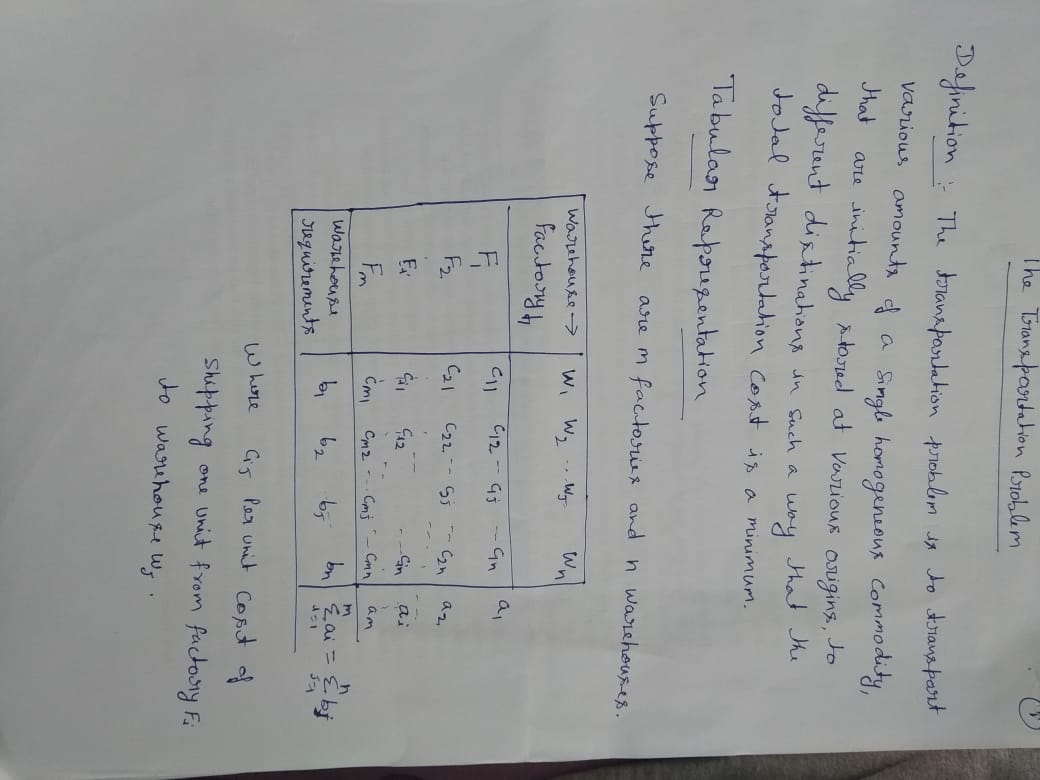 (1)
The Transportation Problem
Definition :- The transportation problem is to transport
various amounts of a single homogeneous commodity,
that are initially stored at various origins, to
different distinations in such a way that the
total transportation cost is a minimum.
Tabular Representation
Suppose there are m factories and n warehouses.
Warehouse → W1 W2 .. Wj Wn
Factory ↓
F1 C11 C12 -- Cij -- Cin a1
F2 C21 C22 -- Cij -- C2n a2
Fi Ci1 Ci2 -- -- Cin ai
Fm Cm1 Cm2 --- Cmj -- Cmn am
Warehouse b1 b2 bj bn m∑i=1 ai = n∑j=1 bj
requirements
Where Cij Per unit Cost of
Shipping one unit from factory Fi
to Warehouse Wj.